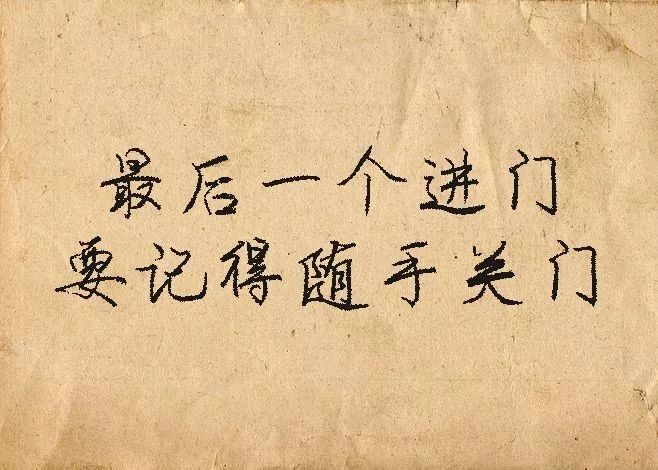 最后一个进门
要记得随手关门